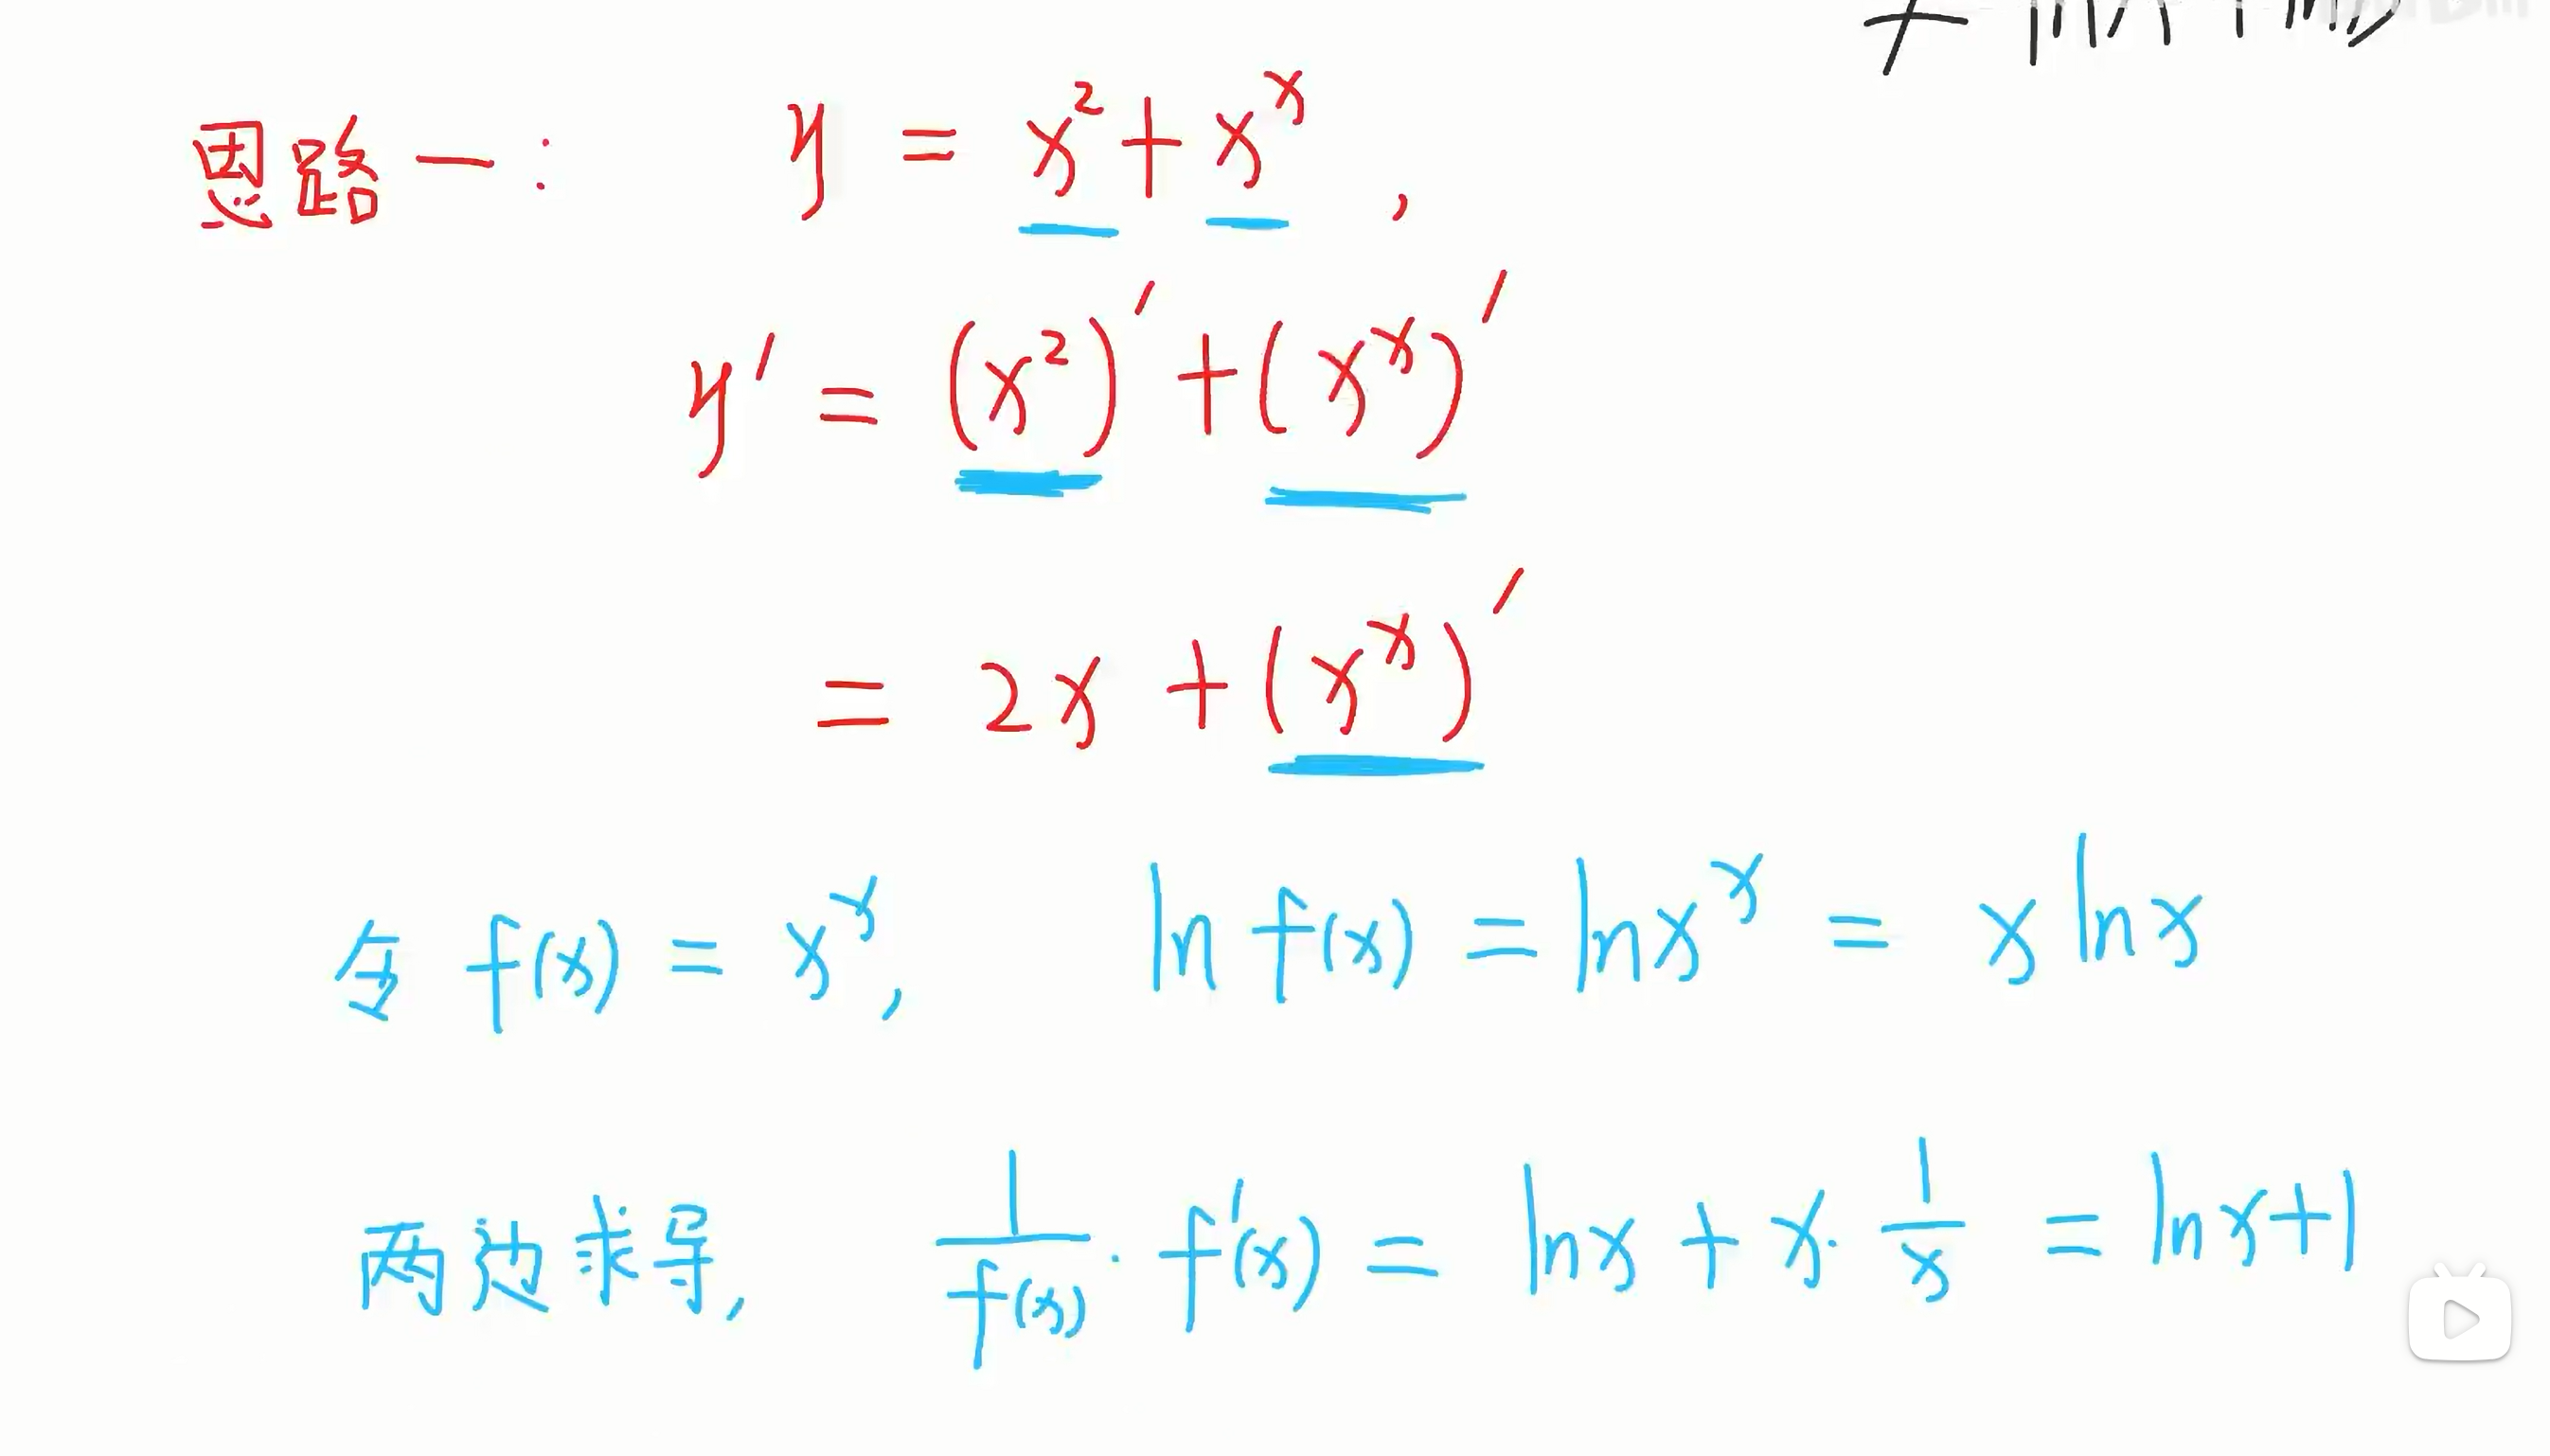 思路一: y = x² + xˣ ,
y' = (x²)' + (xˣ)'
= 2x + (xˣ)'
令 f(x) = xˣ, ln f(x) = ln xˣ = x ln x
两边求导, 1/f(x) · f'(x) = ln x + x · 1/x = ln x + 1